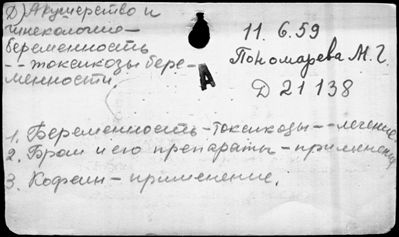 Д) Акушерство и
гинекология –
беременность
-- токсикозы бере-
менности.
11.6.59
Пономарева М.Г.
А
Д 21138
1. Беременность – токсикозы -- лечение.
2. Бром и его препараты – применение
3. Кофеин – применение.